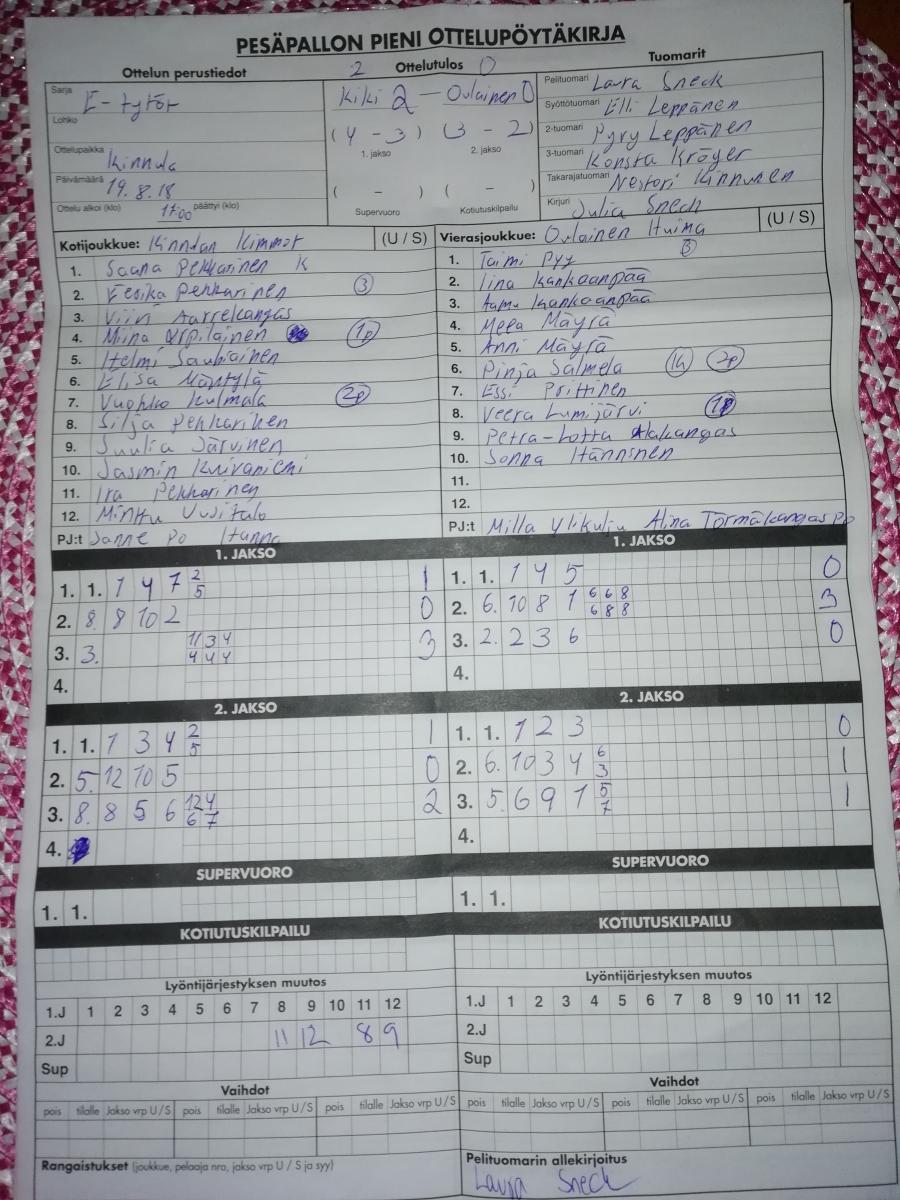 PESÄPALLON PIENI OTTELUPÖYTÄKIRJA
Ottelun perustiedot
2 Ottelutulos 0
Tuomarit
Sarja E-tytöt
Lohko
Ottelupaikka Kinnula
Päivämäärä 19.8.18
Ottelu alkoi (klo) 17:00 päättyi (klo)
Kiki 2 - Oulainen 0
(4 - 3) (3 - 2)
1. jakso 2. jakso
( - ) ( - )
Supervuoro Kotiutuskilpailu
Pelituomari Laura Sneck
Syöttötuomari Elli Leppänen
2-tuomari Pyry Leppänen
3-tuomari Konsta Kröger
Takarajatuomari Nestori Kinnunen
Kirjuri Julia Sneck
Kotijoukkue: Kinnulan Kimmot (U / S)
1. Saana Pekkarinen K
2. Eerika Pekkarinen 3
3. Viivi Aarrekangas
4. Miina Urpilainen 1p
5. Helmi
6. Elisa Mäntylä
7. Vuokko Kulmala 2p
8. Silja Pekkarinen
9. Suulia Järvinen
10. Jasmin Kuivaniemi
11. Ira Pekkarinen
12. Minttu Uusitalo
PJ:t Sanne Po Hanna
Vierasjoukkue: Oulainen Huima (U / S)
1. Taimi Pyy 3
2. Iina Kankaanpää
3. Aamu Kankaanpää
4. Meea Mäyrä
5. Anni Mäyrä
6. Pinja Salmela 1k 2p
7. Essi
8. Veera Lumijärvi 1p
9. Petra-Lotta Alakangas
10. Sonna Hänninen
11.
12.
PJ:t Milla Ylikulju Alina Törmäkangas po
1. JAKSO
1. 1. 1 4 7 2/5 1
2. 8. 8 10 2 0
3. 3. 11 3 4 / 4 4 4 3
4.
1. JAKSO
1. 1. 1 4 5 0
2. 6. 10 8 1 6 6 8 / 6 8 8 3
3. 2. 2 3 6 0
4.
2. JAKSO
1. 1. 1 3 4 2/5 1
2. 5. 12 10 5 0
3. 8. 8 5 6 12 4 / 6 7 2
4.
2. JAKSO
1. 1. 1 2 3 0
2. 6. 10 3 4 6/3 1
3. 5. 6 9 1 5/7 1
4.
SUPERVUORO SUPERVUORO
1. 1. 1. 1.
KOTIUTUSKILPAILU KOTIUTUSKILPAILU
Lyöntijärjestyksen muutos Lyöntijärjestyksen muutos
1.J 1 2 3 4 5 6 7 8 9 10 11 12 1.J 1 2 3 4 5 6 7 8 9 10 11 12
2.J 11 12 8 9 2.J
Sup Sup
Vaihdot Vaihdot
pois tilalle Jakso vrp U / S pois tilalle Jakso vrp U / S pois tilalle Jakso vrp U / S pois tilalle Jakso vrp U / S pois tilalle Jakso vrp U / S pois tilalle Jakso vrp U / S
Rangaistukset (joukkue, pelaaja nro, jakso vrp U / S ja syy)
Pelituomarin allekirjoitus
Laura Sneck